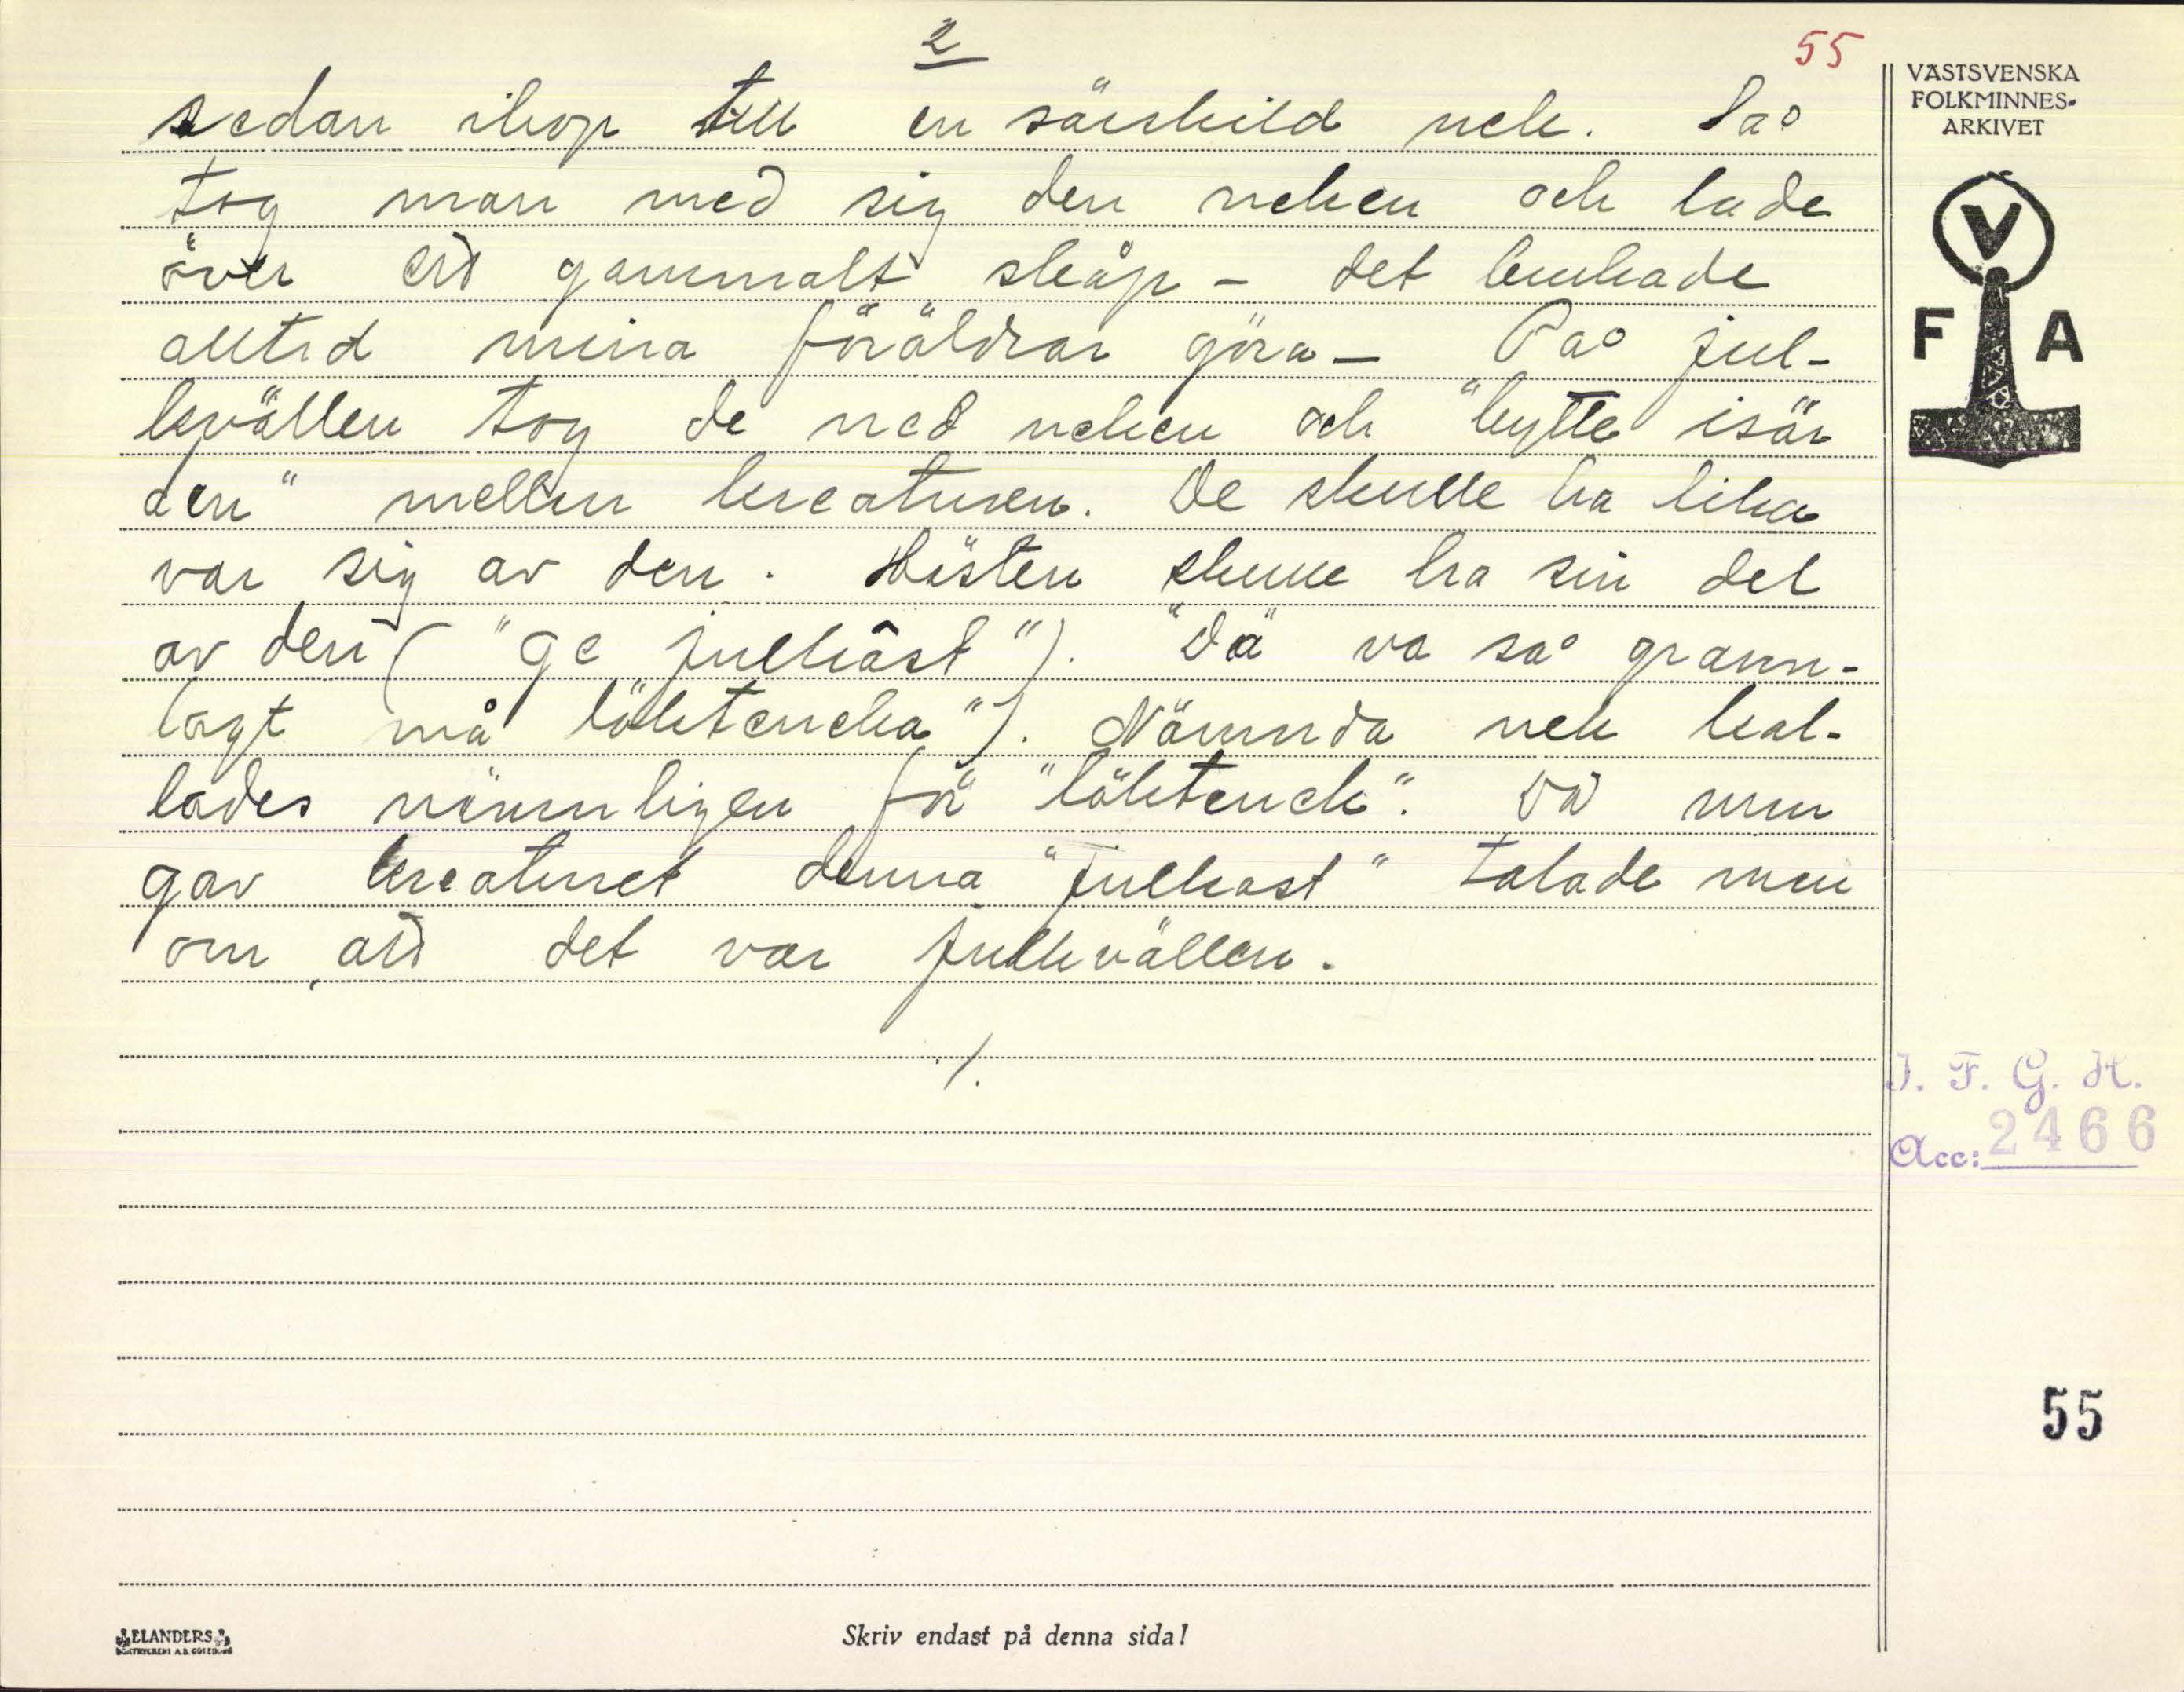 2
55
sedan ihop till en särskild nek. Så
tog man med sig den neken och lade
över ett gammalt skåp - det brukade
alltid mina föräldrar göra - På jul-
kvällen tog de ned neken och "bytte isär
den" mellan kreaturen. De skulle ha lika
var sig av den. Hästen skulle ha sin del
av den ("ge julkast"). "Dä va så grann-
lagt må lökteneka"). Nämnda nek kal-
lades nämnligen för "löktenek". Då man
gav kreaturet denna "julkast" talade man
om att det var julkvällen.
./.
VÄSTSVENSKA
FOLKMINNES-
ARKIVET
V
F A
I. F. G. H.
Acc: 2466
55
ELANDERS
BOKTRYCKERI A.B. GÖTEBORG
Skriv endast på denna sida!